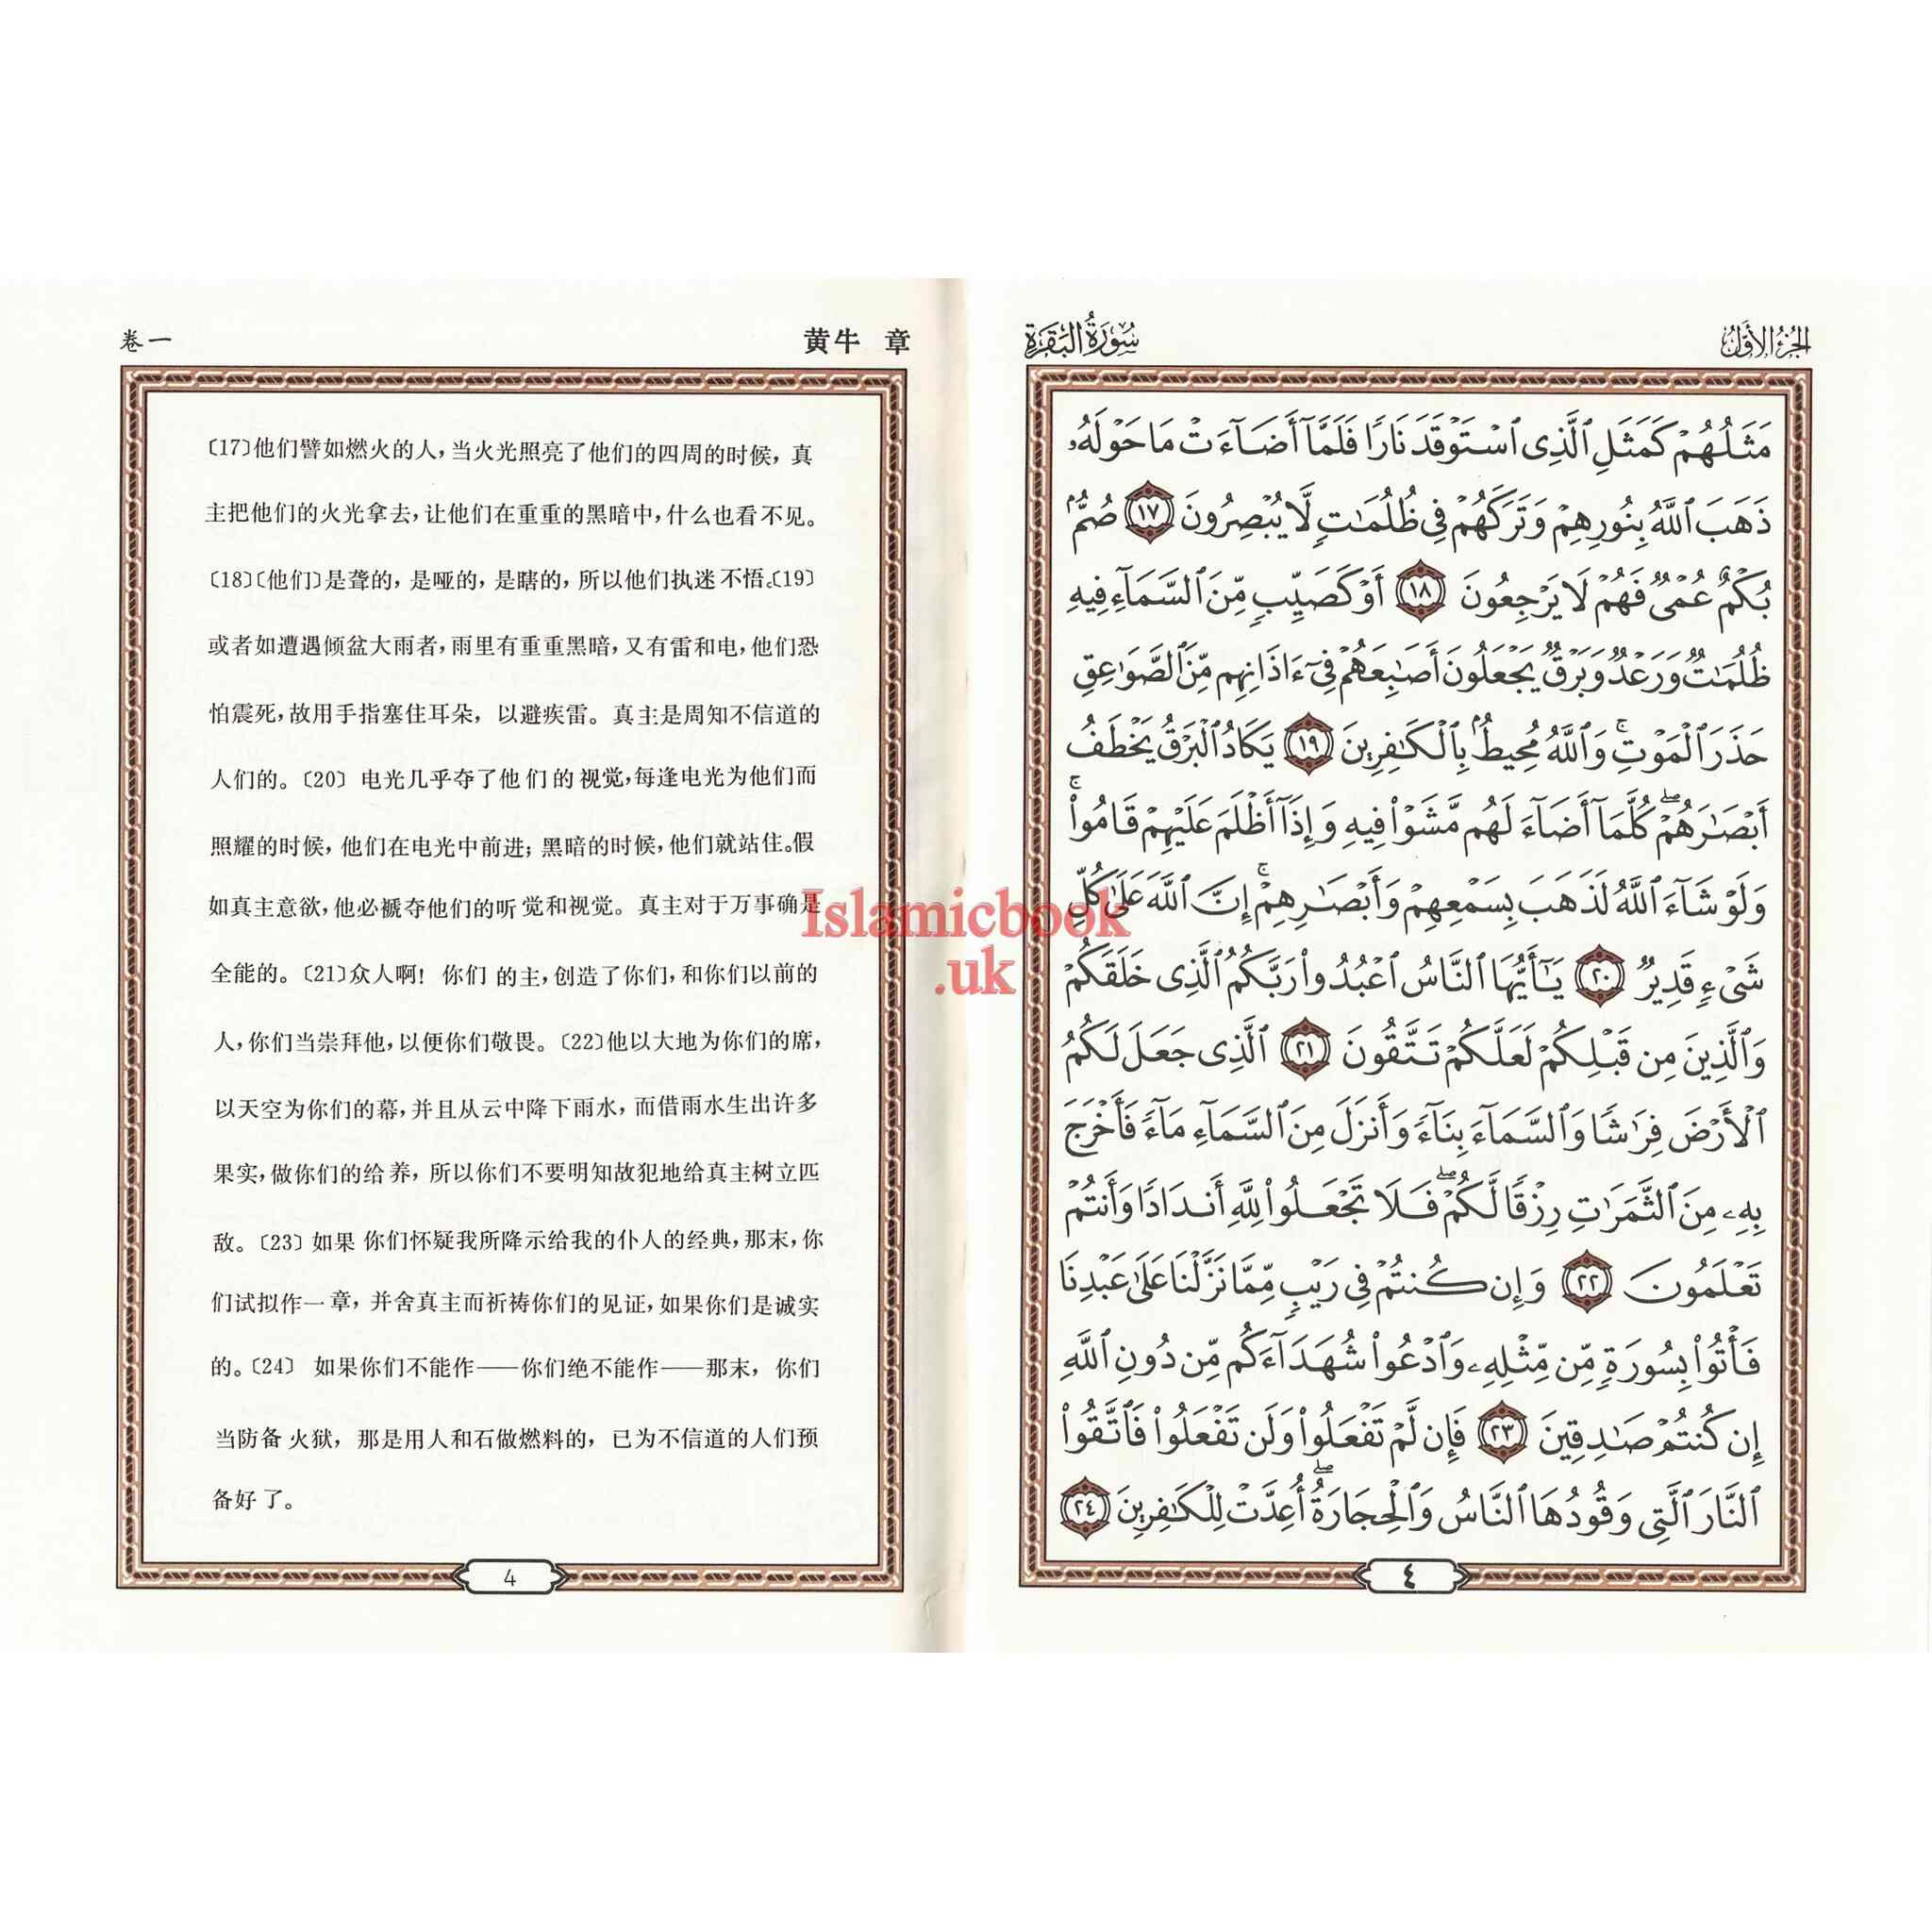 卷一
黄牛 章
〔17〕他们譬如燃火的人,当火光照亮了他们的四周的时候，真
主把他们的火光拿去,让他们在重重的黑暗中,什么也看不见。
〔18〕〔他们〕是聋的，是哑的，是瞎的，所以他们执迷不悟。〔19〕
或者如遭遇倾盆大雨者,雨里有重重黑暗,又有雷和电,他们恐
怕震死,故用手指塞住耳朵，以避疾雷。真主是周知不信道的
人们的。〔20〕电光几乎夺了他们的视觉,每逢电光为他们而
照耀的时候，他们在电光中前进；黑暗的时候,他们就站住。假
如真主意欲,他必褫夺他们的听觉和视觉。真主对于万事确是
全能的。〔21〕众人啊！你们的主,创造了你们,和你们以前的
人,你们当崇拜他,以便你们敬畏。〔22〕他以大地为你们的席,
以天空为你们的幕,并且从云中降下雨水,而借雨水生出许多
果实,做你们的给养，所以你们不要明知故犯地给真主树立匹
敌。〔23〕如果你们怀疑我所降示给我的仆人的经典,那末,你
们试拟作一章，并舍真主而祈祷你们的见证,如果你们是诚实
的。〔24〕如果你们不能作——你们绝不能作——那末，你们
当防备火狱，那是用人和石做燃料的，已为不信道的人们预
备好了。
4
سُورَةُ البَقَرَةِ
الجُزْءُ الأَوَّلُ
مَثَلُهُمْ كَمَثَلِ ٱلَّذِى ٱسْتَوْقَدَ نَارًا فَلَمَّآ أَضَآءَتْ مَا حَوْلَهُۥ
ذَهَبَ ٱللَّهُ بِنُورِهِمْ وَتَرَكَهُمْ فِى ظُلُمَٰتٍ لَّا يُبْصِرُونَ ١٧ صُمٌّۢ
بُكْمٌ عُمْىٌ فَهُمْ لَا يَرْجِعُونَ ١٨ أَوْ كَصَيِّبٍ مِّنَ ٱلسَّمَآءِ فِيهِ
ظُلُمَٰتٌ وَرَعْدٌ وَبَرْقٌ يَجْعَلُونَ أَصَٰبِعَهُمْ فِىٓ ءَاذَانِهِم مِّنَ ٱلصَّوَٰعِقِ
حَذَرَ ٱلْمَوْتِ ۚ وَٱللَّهُ مُحِيطٌۢ بِٱلْكَٰفِرِينَ ١٩ يَكَادُ ٱلْبَرْقُ يَخْطَفُ
أَبْصَٰرَهُمْ ۖ كُلَّمَآ أَضَآءَ لَهُم مَّشَوْا۟ فِيهِ وَإِذَآ أَظْلَمَ عَلَيْهِمْ قَامُوا۟ ۚ
وَلَوْ شَآءَ ٱللَّهُ لَذَهَبَ بِسَمْعِهِمْ وَأَبْصَٰرِهِمْ ۚ إِنَّ ٱللَّهَ عَلَىٰ كُلِّ
شَىْءٍ قَدِيرٌ ٢٠ يَٰٓأَيُّهَا ٱلنَّاسُ ٱعْبُدُوا۟ رَبَّكُمُ ٱلَّذِى خَلَقَكُمْ
وَٱلَّذِينَ مِن قَبْلِكُمْ لَعَلَّكُمْ تَتَّقُونَ ٢١ ٱلَّذِى جَعَلَ لَكُمُ
ٱلْأَرْضَ فِرَٰشًا وَٱلسَّمَآءَ بِنَآءً وَأَنزَلَ مِنَ ٱلسَّمَآءِ مَآءً فَأَخْرَجَ
بِهِۦ مِنَ ٱلثَّمَرَٰتِ رِزْقًا لَّكُمْ ۖ فَلَا تَجْعَلُوا۟ لِلَّهِ أَندَادًا وَأَنتُمْ
تَعْلَمُونَ ٢٢ وَإِن كُنتُمْ فِى رَيْبٍ مِّمَّا نَزَّلْنَا عَلَىٰ عَبْدِنَا
فَأْتُوا۟ بِسُورَةٍ مِّن مِّثْلِهِۦ وَٱدْعُوا۟ شُهَدَآءَكُم مِّن دُونِ ٱللَّهِ
إِن كُنتُمْ صَٰدِقِينَ ٢٣ فَإِن لَّمْ تَفْعَلُوا۟ وَلَن تَفْعَلُوا۟ فَٱتَّقُوا۟
ٱلنَّارَ ٱلَّتِى وَقُودُهَا ٱلنَّاسُ وَٱلْحِجَارَةُ ۖ أُعِدَّتْ لِلْكَٰفِرِينَ ٢٤
٤
Islamicbook
.uk